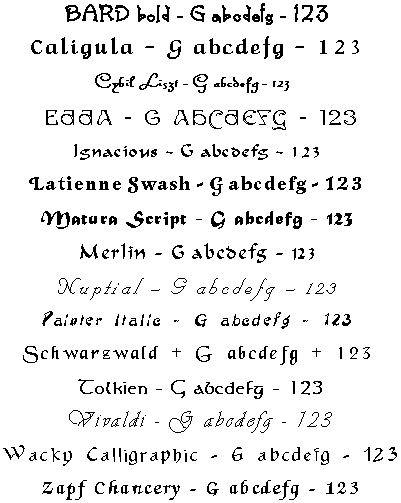 BARD bold - G abcdefg - 123
Caligula - G abcdefg - 123
Cybil Liszt - G abcdefg - 123
EddA - G ABCdEFG - 123
Ignacious ~ G abcdefg ~ 123
Latienne Swash - G abcdefg - 123
Matura Script - G abcdefg - 123
Merlin - G abcdefg - 123
Nuptial - G abcdefg - 123
Painter Italic - G abcdefg - 123
Schwarzwald + G abcdefg + 123
Tolkien - G abcdefg - 123
Vivaldi - G abcdefg - 123
Wacky Calligraphic - G abcdefg - 123
Zapf Chancery - G abcdefg - 123